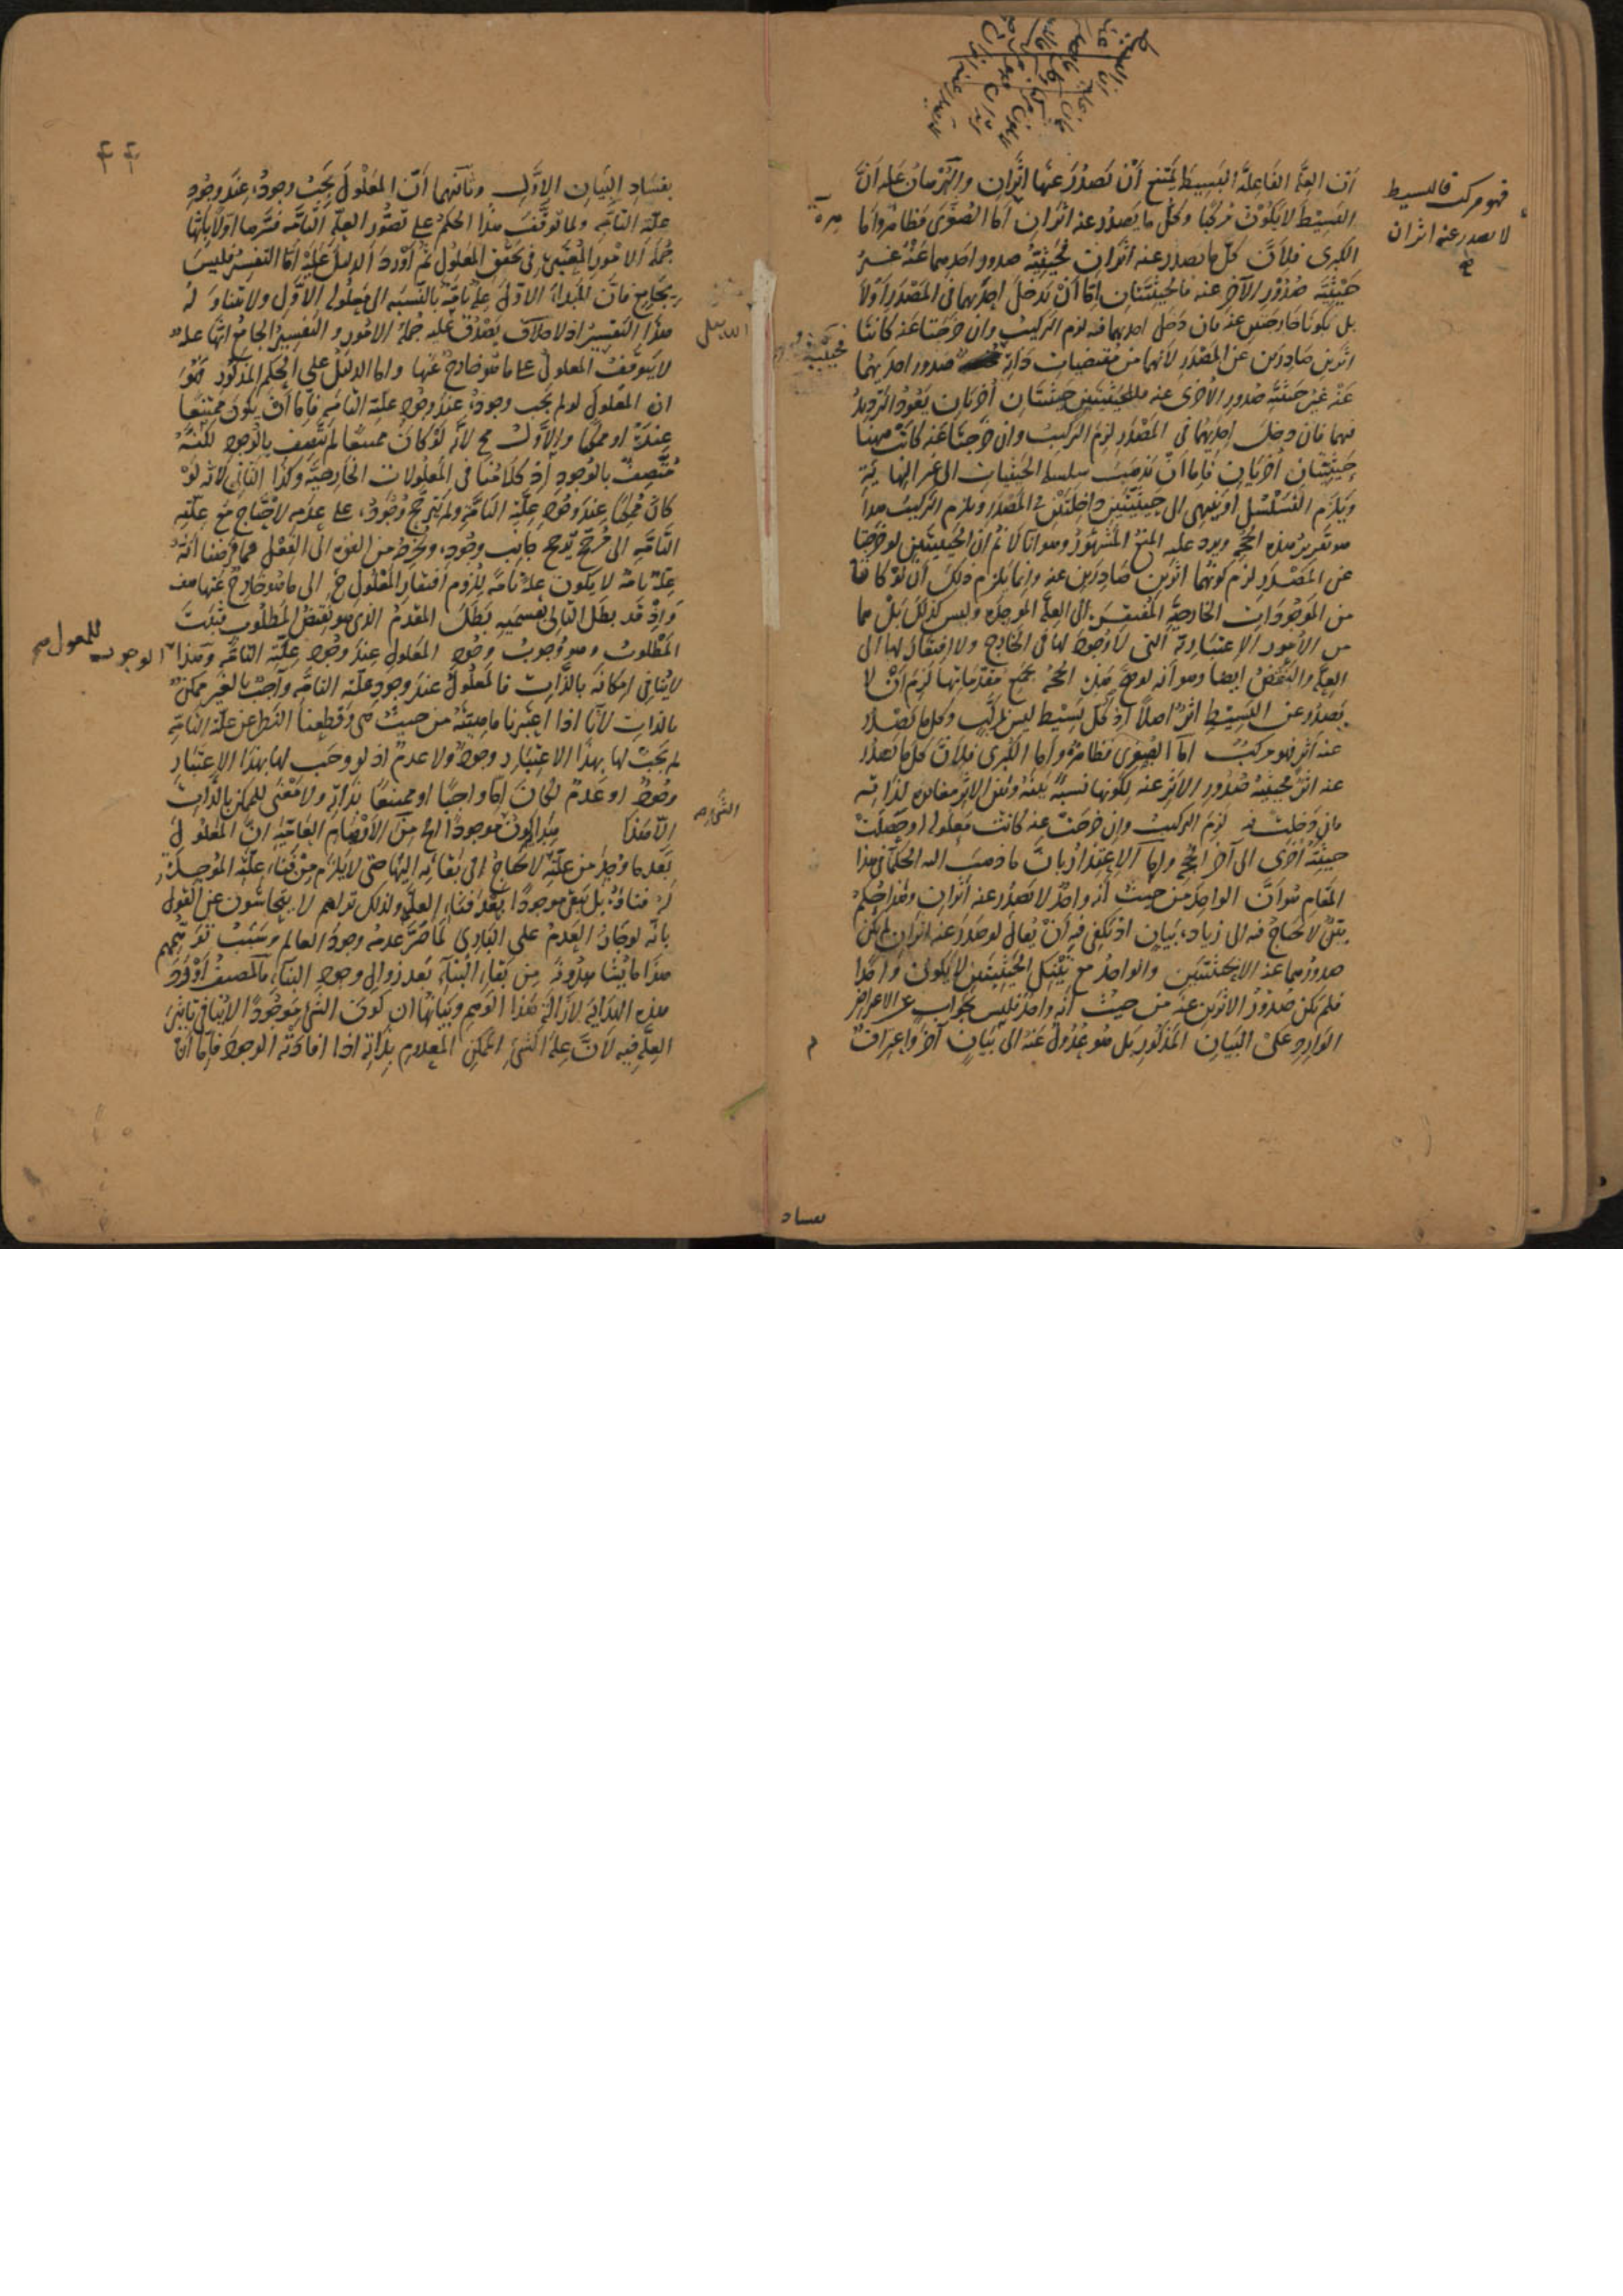 أن العلة الفاعلة البسيطة يمتنع أن تصدر عنها اثران والبرهان عليه أن
البسيط لا يكون مركبا وكل ما يصدر عنه اثران أما الصغرى فظاهرة وأما
الكبرى فلأن كل ما يصدر عنه اثران فحيثية صدور احدهما عنه غير
حيثية صدور الآخر عنه فالحيثيتان إما أن تدخل احديهما في المصدر أولا
بل تكونا خارجتين عنه فان دخل احديهما فيه لزم التركيب وان خرجتا عنه كانتا
اثرين صادرين عن المصدر لأنهما من مقتضيات ذاته صدور احديهما
عنه غير حيثية صدور الأخرى عنه فللحيثيتين حيثيتان أخريان يعود الترديد
فيهما فان دخل احديهما في المصدر لزم التركيب وان خرجتا عنه كانت ههنا
حيثيتان أخريان فإما أن تذهب سلسلة الحيثيات الى غير النهاية
ويلزم التسلسل أو ينتهي الى حيثيتين داخلتين في المصدر ويلزم التركيب هذا
هو تقرير هذه الحجة ويرد عليه المنع المشهور وهو انا لا نم ان الحيثيتين لو خرجتا
عن المصدر لزم كونهما اثرين صادرين عنه وانما يلزم ذلك أن لو كانتا
من الموجودات الخارجية المفتقرة الى العلة الموجدة وليس كذلك بل هما
من الأمور الاعتبارية التي لا وجود لها في الخارج ولا افتقار لها الى
العلة والنقض ايضا وهو أنه لو صح هذه الحجة بجميع مقدماتها لزم أن لا
يصدر عن البسيط اثر اصلا اذ كل بسيط ليس بمركب وكل ما يصدر
عنه اثر فهو مركب أما الصغرى فظاهرة وأما الكبرى فلأن كل ما يصدر
عنه اثر فحيثية صدور الاثر عنه لكونها نسبة بينه وبين الاثر مغايرة لذاته
فان دخلت فيه لزم التركيب وان خرجت عنه كانت معلولة او حصلت
حيثية أخرى الى آخر الحجة وأما الاعتذار بأن ما ذهب اليه الحكماء في هذا
المقام هو أن الواحد من حيث أنه واحد لا يصدر عنه أثران وهذا حكم
بين لا يحتاج فيه الى زيادة بيان اذ يكفي فيه أن يقال لو صدر عنه اثران لم يكن
صدورهما عنه الا بحيثيتين والواحد مع تينك الحيثيتين لا يكون واحدا
فلم يكن صدور الاثرين عنه من حيث أنه واحد فليس بجواب عن الاعتراض
الوارد على البيان المذكور بل هو عدول عنه الى بيان آخر واعتراف
فهو مركب فالبسيط
لا يصدر عنه اثران
بفساد
٤٤
بفساد البيان الاول وثانيهما أن المعلول يجب وجوده عند وجود
علته التامة ولما توقف هذا الحكم على تصور العلة التامة فسرها اولا بأنها
جملة الامور المعتبرة في تحقق المعلول ثم أورد الدليل عليه أما التفسير فليس
بجامع فان المبدأ الاول علة تامة بالنسبة الى معلوله الاول ولا يتناوله
هذا التفسير اذ لا يصدق عليه جملة الامور والتفسير الجامع انها علة
لا يتوقف المعلول على ما هو خارج عنها واما الدليل على الحكم المذكور فهو
ان المعلول لو لم يجب وجوده عند وجود علته التامة فإما أن يكون ممتنعا
عنده او ممكنا والأول مح لأنه لو كان ممتنعا لم يتصف بالوجود لكنه
متصف بالوجود اذ كلامنا في المعلولات الخارجية وكذا الثاني لانه لو
كان ممكنا عند وجود علته التامة ولم يترجح وجوده على عدمه لاحتاج مع علته
التامة الى مرجح يرجح جانب وجوده ويخرجه من القوة الى الفعل فما فرضنا أنه
علة تامة لا يكون علة تامة للزوم افتقار المعلول ح الى ما هو خارج عنها هف
واذ قد بطل التالي بقسميه بطل المقدم الذي هو نقيض المطلوب فثبت
المطلوب وهو وجوب وجود المعلول عند وجود علته التامة وهذا الوجوب للمعلول
لا ينافي امكانه بالذات فالمعلول عند وجود علته التامة واجب بالغير ممكن
بالذات لأنا اذا اعتبرنا ماهيته من حيث هي وقطعنا النظر عن علته التامة
لم يجب لها بهذا الاعتبار وجود ولا عدم اذ لو وجب لها بهذا الاعتبار
وجود او عدم لكان إما واجبا او ممتنعا بذاته ولا معنى للممكن بالذات
الا هذا من الأوهام العامية ان المعلول
بعد ما وجد من علته لا يحتاج في بقائه اليها حتى لا يلزم من فناء علته الموجدة
له فناؤه بل يبقى موجودا بعد فناء العلة ولذلك تراهم لا يتحاشون عن القول
بأنه لو جاز العدم على الباري لما ضر عدمه وجود العالم وسبب توهمهم
هذا ما يشاهدونه من بقاء البناء بعد زوال وجود البناء فالمصنف أورد
هذه الهداية لازالة هذا الوهم وبيانها ان كون الشئ موجودا لا ينافي تأثير
العلة فيه لأن علة الشئ الممكن المعدوم بذاته اذا افادته الوجود فإما أن